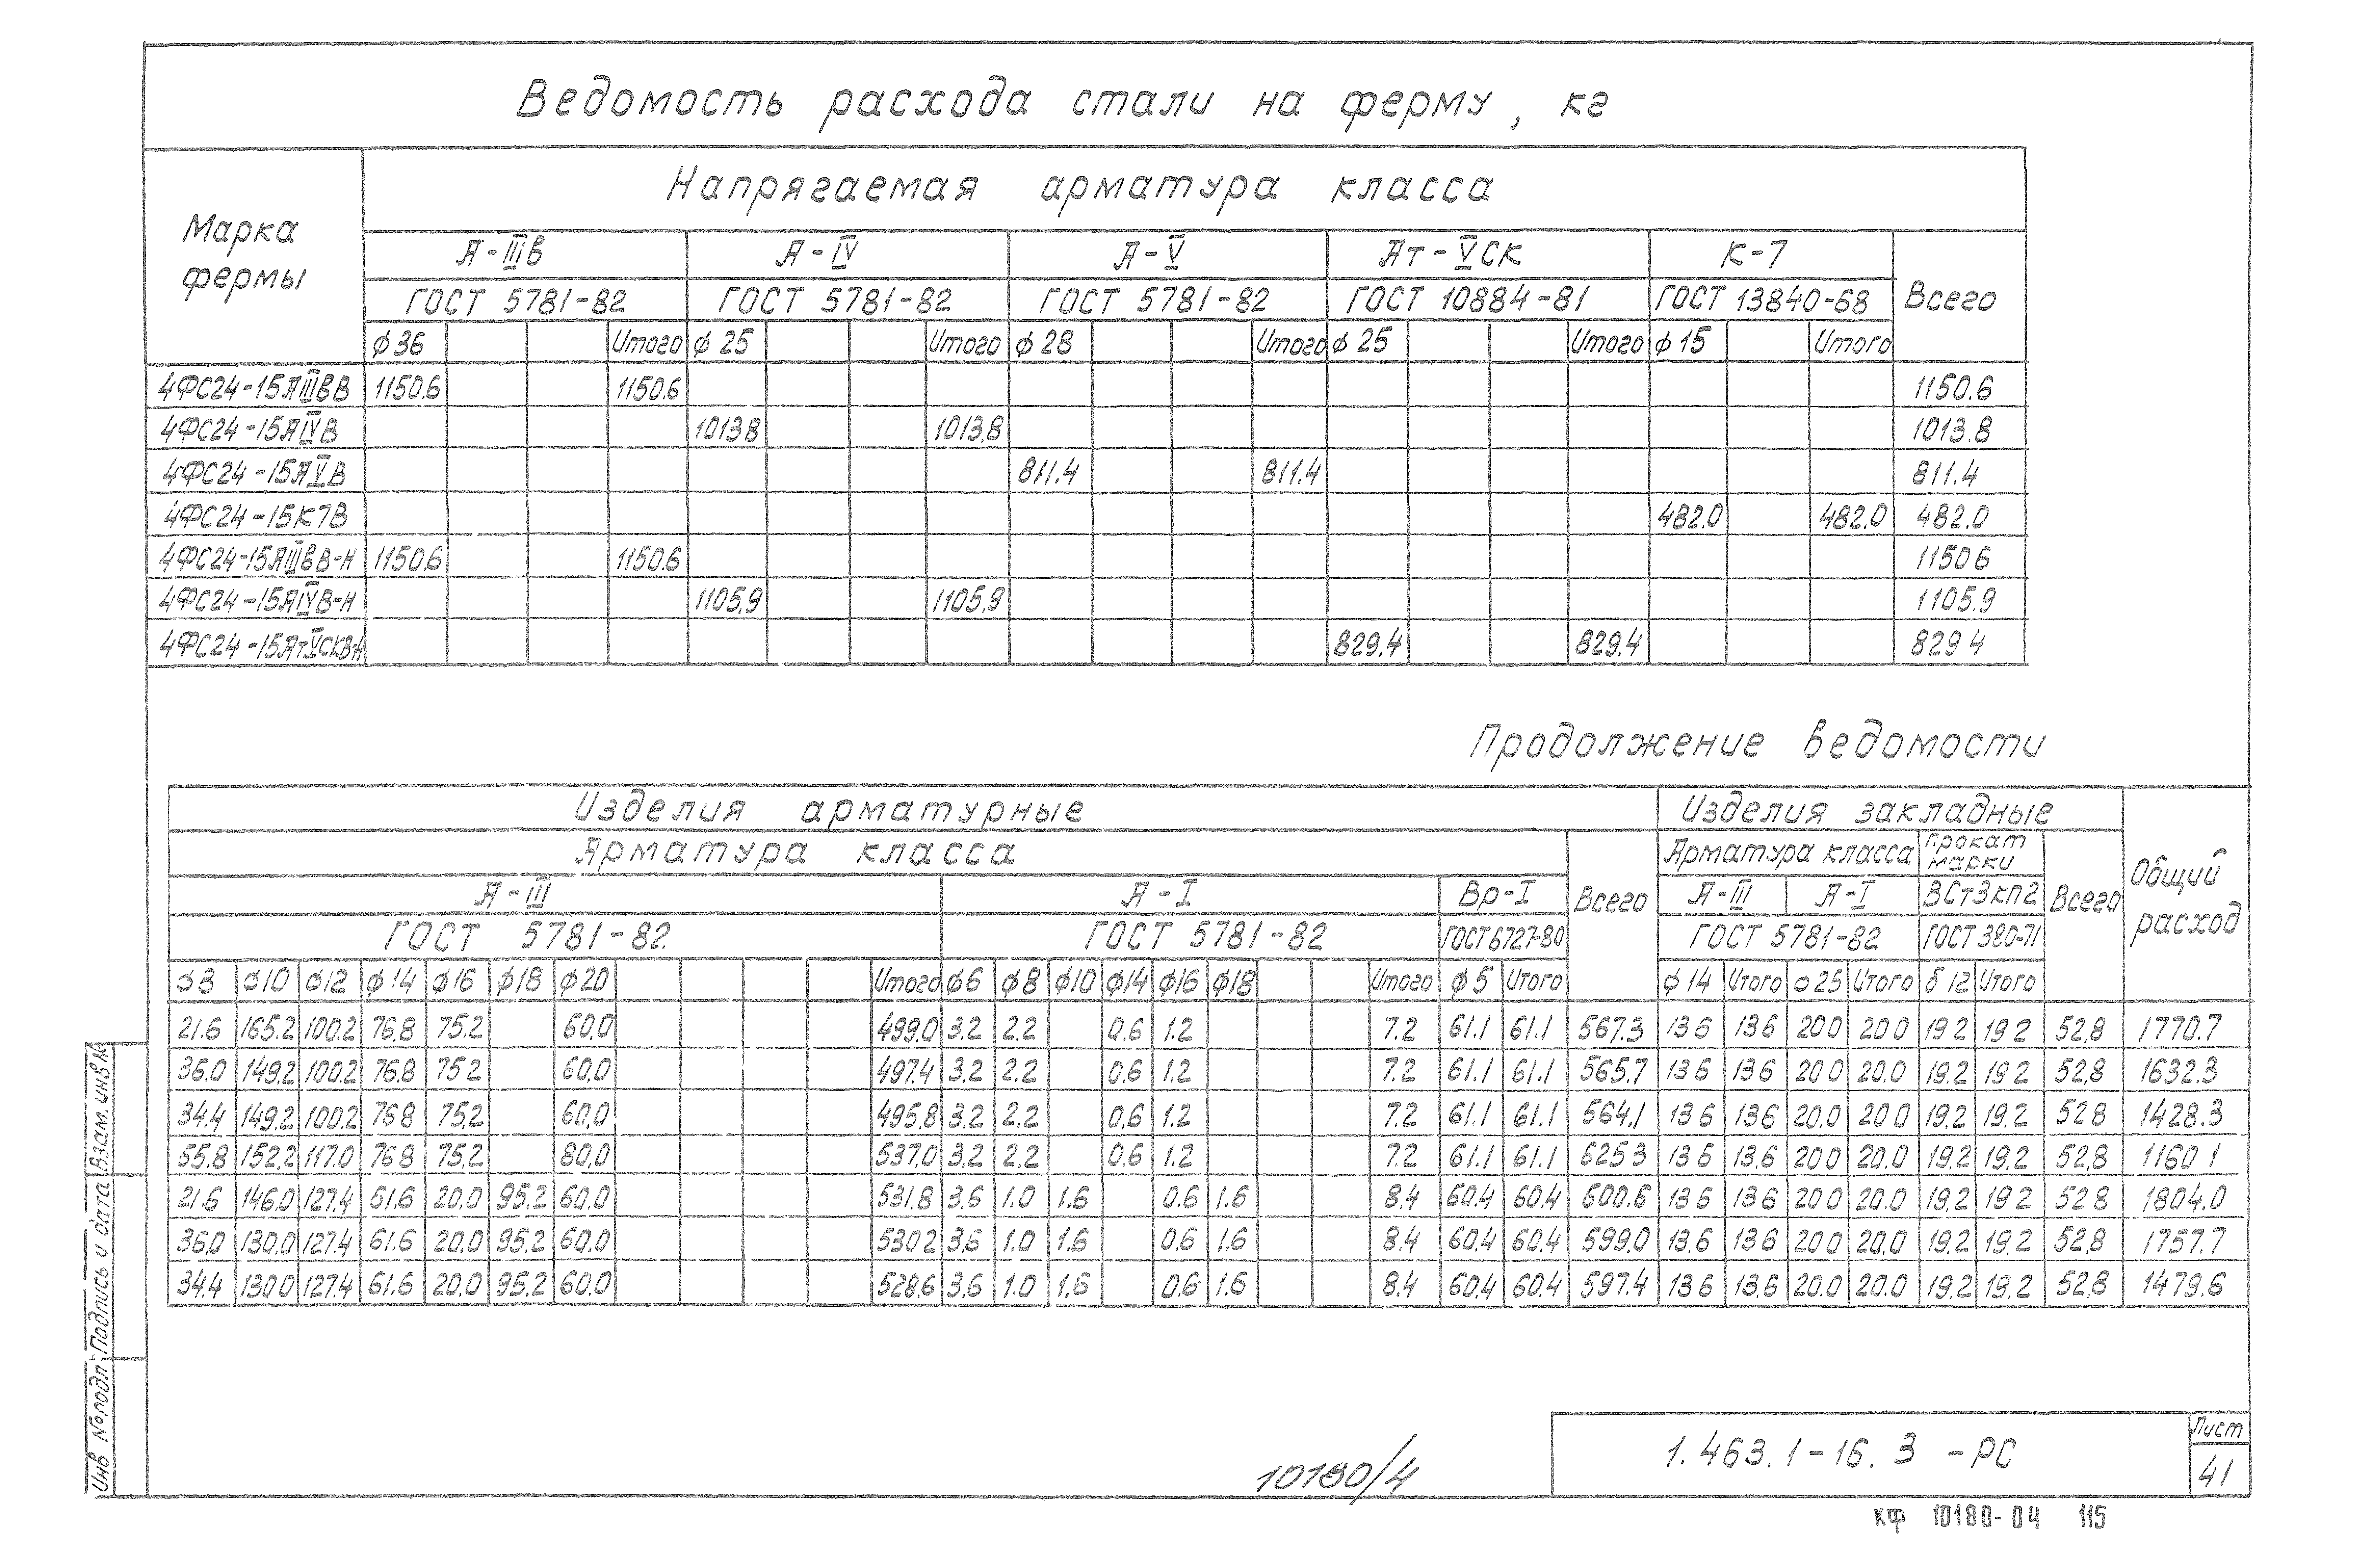 Ведомость расхода стали на ферму, кг
Марка фермы
Напрягаемая арматура класса
А-IIIв А-IV А-V Ат-VСК К-7 Всего
ГОСТ 5781-82 ГОСТ 5781-82 ГОСТ 5781-82 ГОСТ 10884-81 ГОСТ 13840-68
ф36 Итого ф25 Итого ф28 Итого ф25 Итого ф15 Итого
4ФС24-15АIIIвВ 1150.6 1150.6 1150.6
4ФС24-15АIVВ 10138 1013.8 1013.8
4ФС24-15АVВ 811.4 811.4 811.4
4ФС24-15К7В 482.0 482.0 482.0
4ФС24-15АIIIвВ-Н 1150.6 1150.6 11506
4ФС24-15АIVВ-Н 1105.9 1105.9 1105.9
4ФС24-15АтVСКВ-Н 829.4 829.4 829 4
Продолжение ведомости
Изделия арматурные Изделия закладные Общий расход
Арматура класса Всего Арматура класса Прокат марки Всего
А-III А-I Вр-I А-III А-I ВСт3кп2
ГОСТ 5781-82 ГОСТ 5781-82 ГОСТ6727-80 ГОСТ 5781-82 ГОСТ 380-71
ф8 ф10 ф12 ф14 ф16 ф18 ф20 Итого ф6 ф8 ф10 ф14 ф16 ф18 Итого ф5 Итого ф14 Итого ф25 Итого δ12 Итого
21.6 165.2 100.2 76.8 75.2 60.0 499.0 3.2 2.2 0.6 1.2 7.2 61.1 61.1 567.3 13 6 13 6 20 0 20 0 19 2 19 2 52.8 1770.7
36.0 149.2 100.2 76.8 75 2 60.0 497.4 3.2 2.2 0.6 1.2 7.2 61.1 61.1 565.7 13 6 13 6 20 0 20.0 19.2 19 2 52.8 1632.3
34.4 149.2 100.2 76 8 75.2 60.0 495.8 3.2 2.2 0.6 1.2 7.2 61.1 61.1 564.1 13 6 13 6 20.0 20 0 19.2 19.2 52 8 1428.3
55.8 152.2 117.0 76 8 75.2 80.0 537.0 3.2 2.2 0.6 1.2 7.2 61.1 61.1 625 3 13 6 13.6 20 0 20.0 19.2 19.2 52.8 1160 1
21.6 146.0 127.4 61.6 20.0 95.2 60.0 531.8 3.6 1.0 1.6 0.6 1.6 8.4 60.4 60.4 600.6 13 6 13 6 20 0 20.0 19.2 19 2 52 8 1804.0
36.0 130.0 127.4 61.6 20.0 95.2 60.0 530 2 3.6 1.0 1.6 0.6 1.6 8.4 60.4 60.4 599.0 13.6 13 6 20 0 20.0 19.2 19.2 52.8 1757.7
34.4 130 0 127.4 61.6 20.0 95.2 60.0 528.6 3.6 1.0 1.6 0.6 1.6 8.4 60.4 60.4 597.4 13 6 13.6 20.0 20.0 19.2 19.2 52.8 1479.6
Инв № подл. Подпись и дата Взам. инв №
10180/4
1.463.1-16. 3 -РС
Лист
41
КФ 10180-04 115